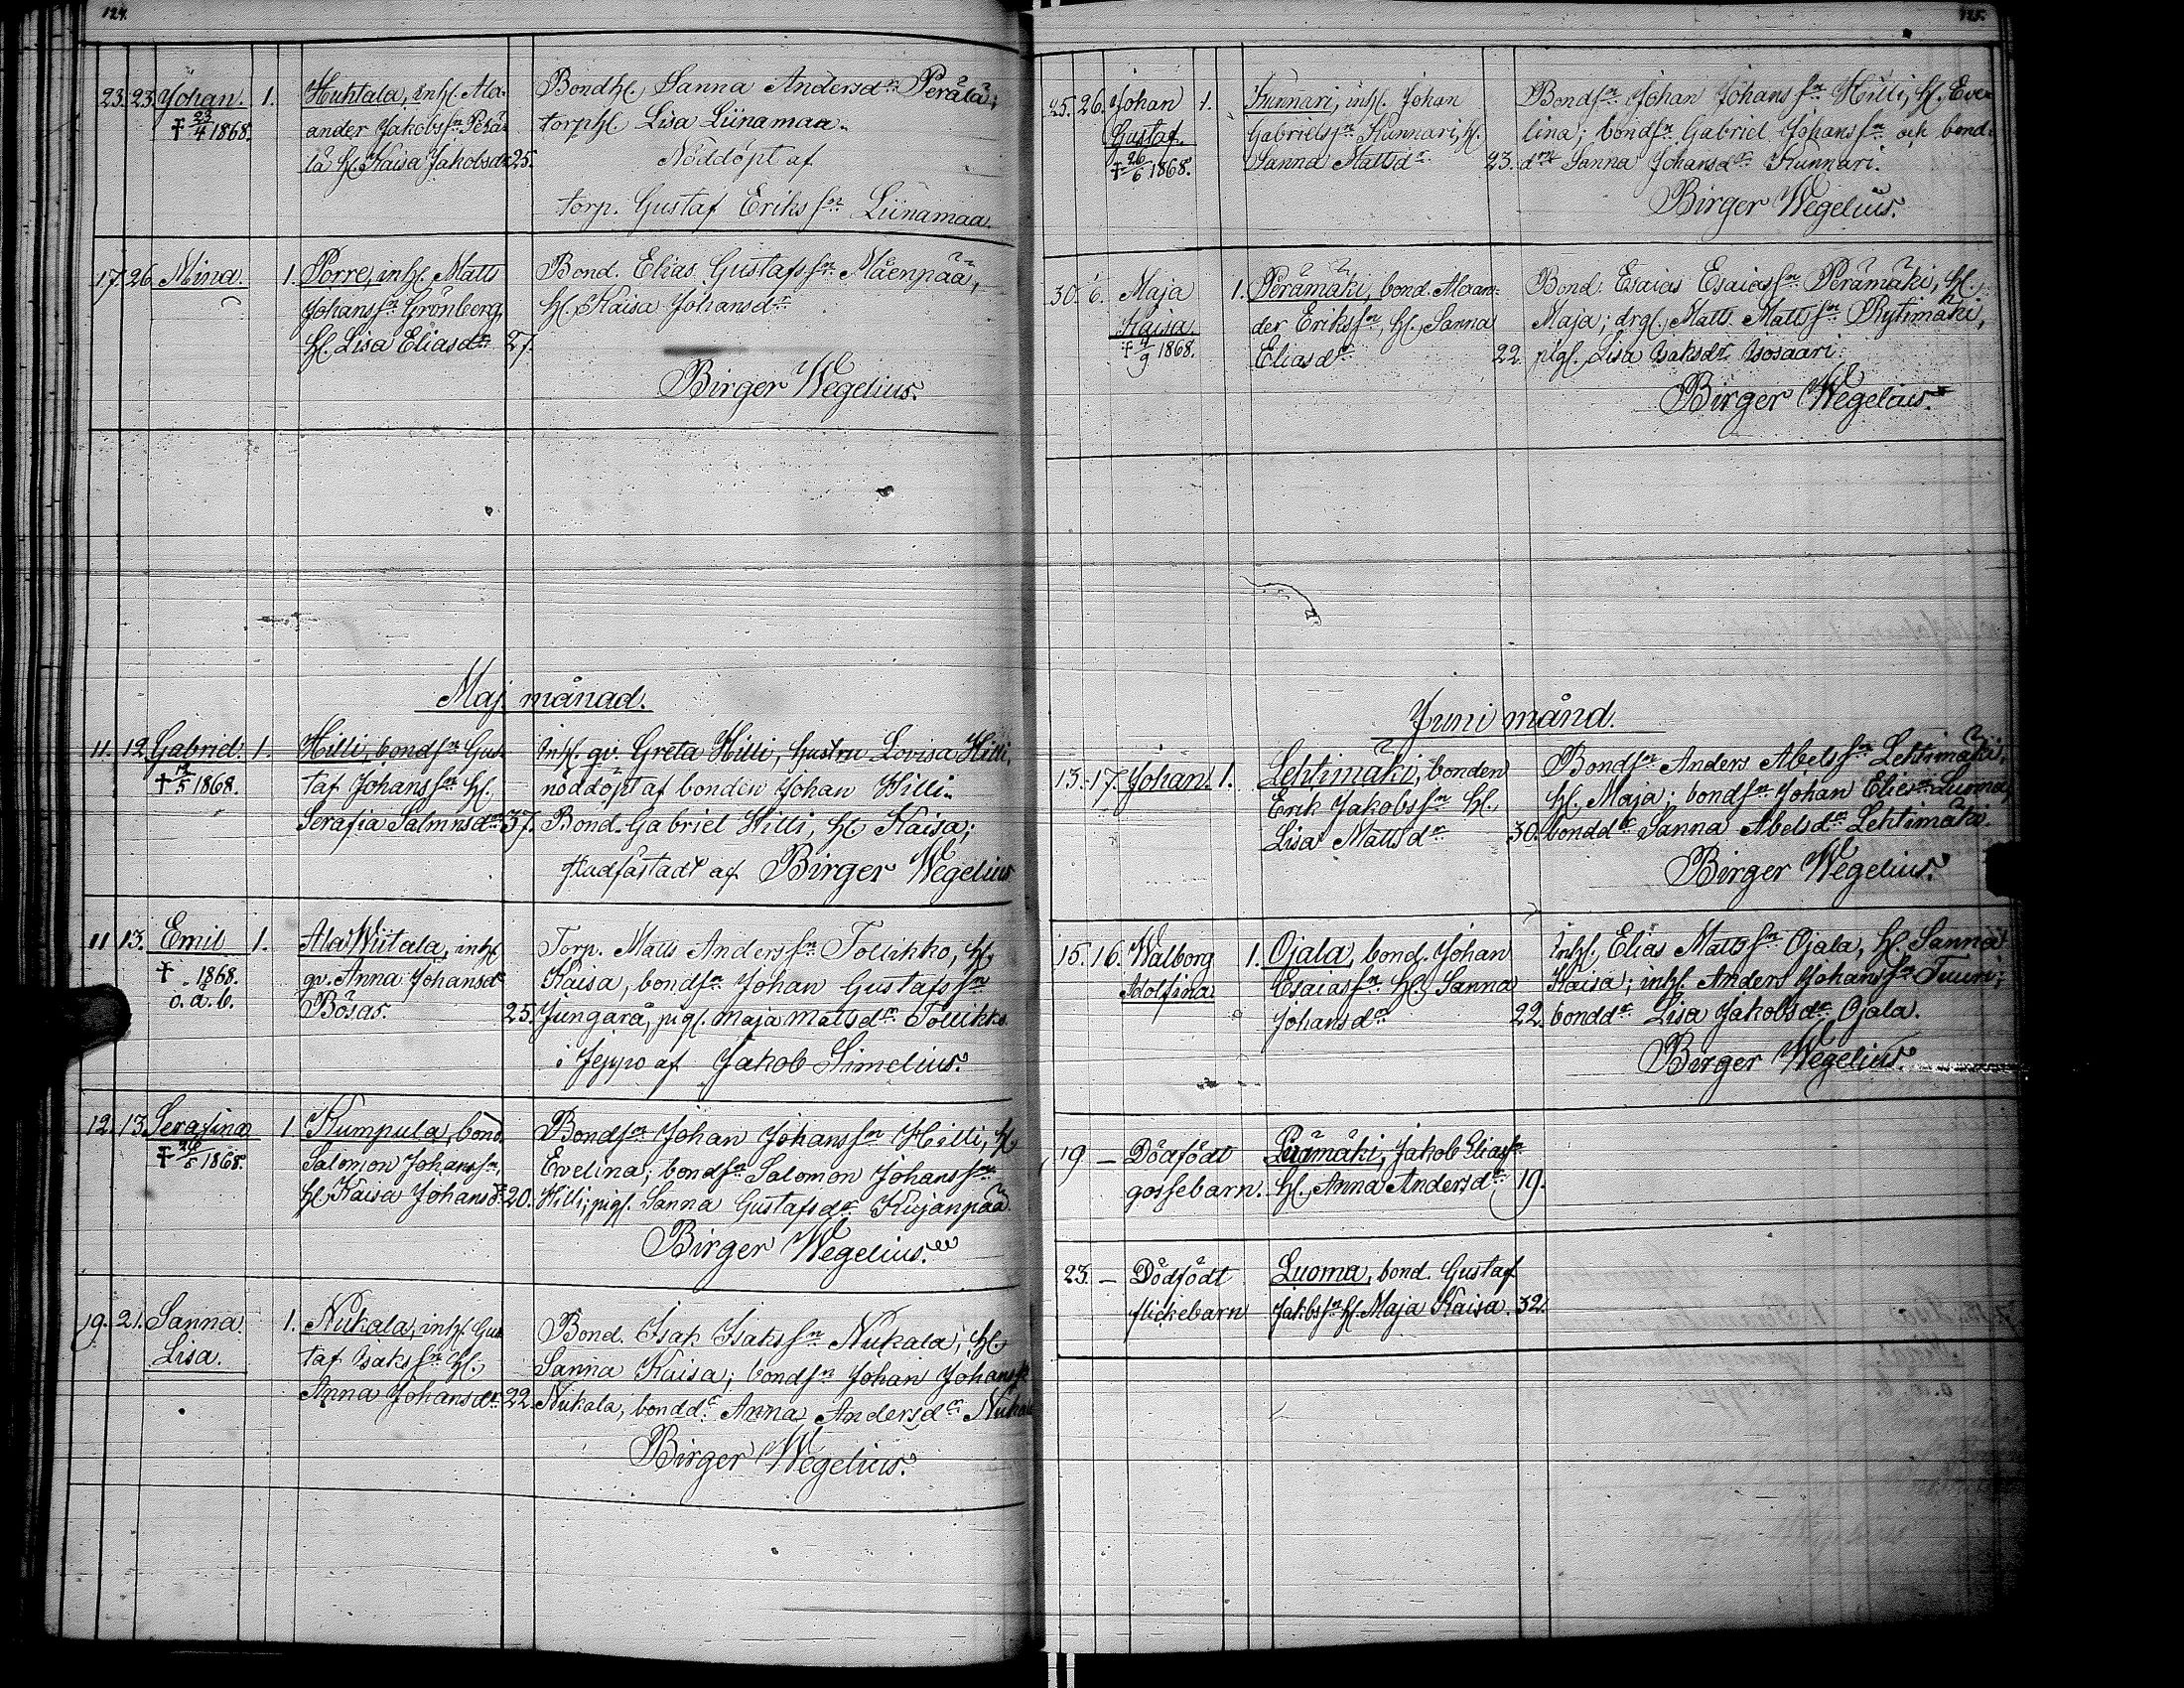 124.
23. 23. Johan. 1. Huhtala, inh. Alexander Jakobss:n Perälä h. Kaisa Jakobsd:r 25.
† 23/4 1868.
Bondh. Sanna Andersd:r Perälä;
torph. Lisa Liinamaa.
Nöddöpt af
torp. Gustaf Eriks s:n Liinamaa.
17. 26. Mina. 1. Porre, inh. Matts
Johans s:n Grönberg,
h. Lisa Eliasd:r 27.
Bond. Elias Gustafs s:n Mäenpää,
h. Kaisa Johansd:r
Birger Wegelius.
Maj månad.
11. 12. Gabriel. 1. Hilli, bonds:n Gus-
† 12/5 1868. taf Johans s:n h.
Serafia Salmnsd:r 37.
Inh. gv. Greta Hilli, hustru Lovisa Hilli,
nöddöpt af bonden Johan Hilli.
Bond. Gabriel Hilli, h. Kaisa;
stadfästadt af Birger Wegelius
11 13. Emil 1. Ala Wiitala, inh.
† 1868. gv. Anna Johansd:r
ö. a. b. Bösas. 25.
Torp. Matts Anders s:n Tollikko, h.
Kaisa, bonds:n Johan Gustafs s:n
Jungarå, pig. Maja Mattsd:r Tollikko.
i Jeppo af Jakob Simelius.
12. 13. Serafina 1 Kumpula, bond.
† 26/5 1868. Salomon Johans s:n,
h. Kaisa Johansd:r 20.
Bonds:n Johan Johans s:n Hilli, h.
Evelina; bonds:n Salomon Johans s:n
Hilli; pig. Sanna Gustafsd:r Kujanpää.
Birger Wegelius.
19. 21. Sanna 1. Nukala, inh. Gus
Lisa. taf Isaks s:n h.
Anna Johansd:r 22.
Bond. Isak Isaks s:n Nukala, h.
Sanna Kaisa; bonds:n Johan Johans s:n
Nukala, bondd:r Anna Andersd:r Nukala
Birger Wegelius.
125.
25. 26. Johan 1. Kunnari, inh. Johan
Gustaf. Gabriels s:n Kunnari, h.
† 26/6 1868. Sanna Mattsd:r 23.
Bonds:n Johan Johans s:n Hilli, h. Eve-
lina; bonds:n Gabriel Johans s:n och bond-
d:r Sanna Johansd:r Kunnari.
Birger Wegelius.
30. 6. Maja 1. Perämäki, bond. Alexan-
Kaisa. der Eriks s:n, h. Sanna
† 4/9 1868. Eliasd:r 22.
Bond. Esaias Esaias s:n Perämäki, h.
Maja; drg. Matts Matts s:n Rytimäki,
pig. Lisa Isaksd:r Isosaari.
Birger Wegelius.
Juni månd.
13. 17. Johan. 1. Lehtimäki, bonden
Erik Jakobs s:n h.
Lisa Mattsd:r 30.
Bonds:n Anders Abels s:n Lehtimäki,
h. Maja; bonds:n Johan Elie s:n Luoma,
bondd:r Sanna Abelsd:r Lehtimäki.
Birger Wegelius.
15. 16. Walborg 1. Ojala, bond. Johan
Adolfina Esaias s:n h. Sanna
Johansd:r 22.
Inh. Elias Matts s:n Ojala, h. Sanna
Kaisa; inh. Anders Johans s:n Tuuri;
bondd:r Lisa Jakobsd:r Ojala.
Birger Wegelius.
19 – Dödfödt Perämäki, Jakob Elias s:n
gossebarn. h. Anna Andersd:r 19.
23. – Dödfödt Luoma, bond. Gustaf
flickebarn Jakobs s:n h. Maja Kaisa. 32.